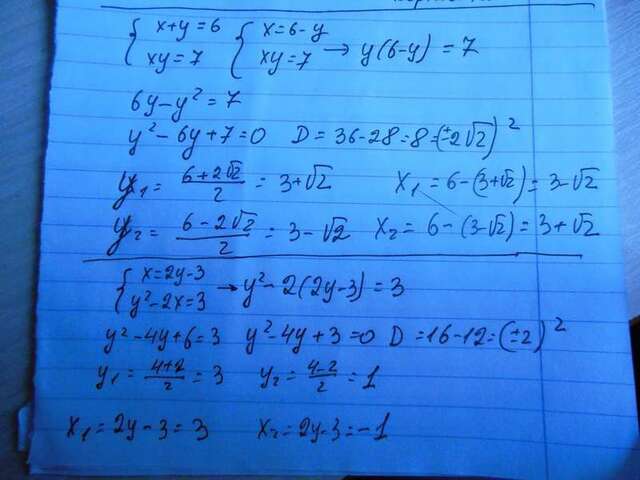 { x+y=6 { x=6-y
xy=7 xy=7 → y(6-y)=7
6y-y²=7
y²-6y+7=0 D=36-28=8=(±2√2)²
y₁= (6+2√2)/2 = 3+√2 x₁=6-(3+√2)=3-√2
y₂= (6-2√2)/2 = 3-√2 x₂= 6-(3-√2)=3+√2
{ x=2y-3
y²-2x=3 → y²-2(2y-3)=3
y²-4y+6=3 y²-4y+3=0 D=16-12=(±2)²
y₁= (4+2)/2 = 3 y₂= (4-2)/2 = 1
x₁=2y-3=3 x₂=2y-3=-1